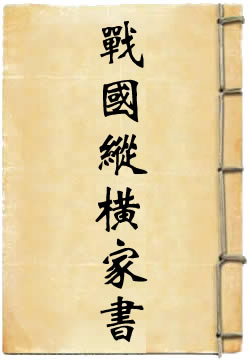 戰國縱橫家書